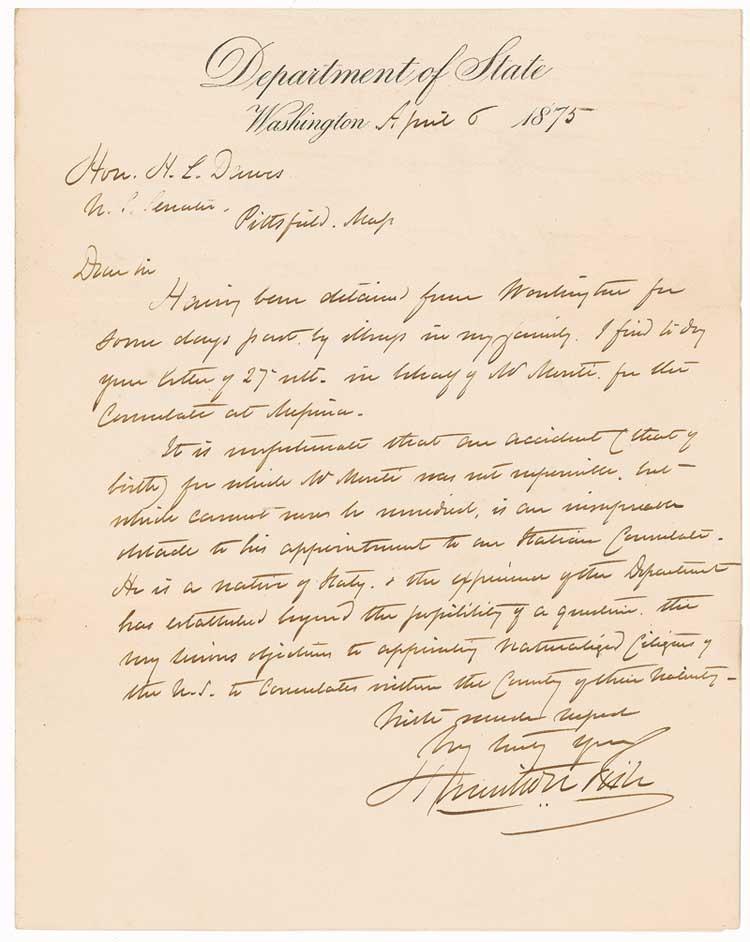 Department of State
Washington April 6 1875
Hon. H. L. Dawes
U. S. Senator.
Pittsfield. Mass
Dear Sir
Having been detained from Washington for
some days past, by illness in my family. I find to day
your letter of 27 ult. in behalf of Mr Monti. for the
Consulate at Messina.
It is unfortunate that an accident (that of
birth) for which Mr Monti was not responsible, but
which cannot now be remedied, is an insuperable
obstacle to his appointment to an Italian Consulate.
He is a native of Italy. & the experience of the Department
has established beyond the possibility of a question, the
very serious objections to appointing Naturalized Citizens of
the U.S. to Consulates within the Country of their Nativity
With much respect
Very truly Yours
Hamilton Fish